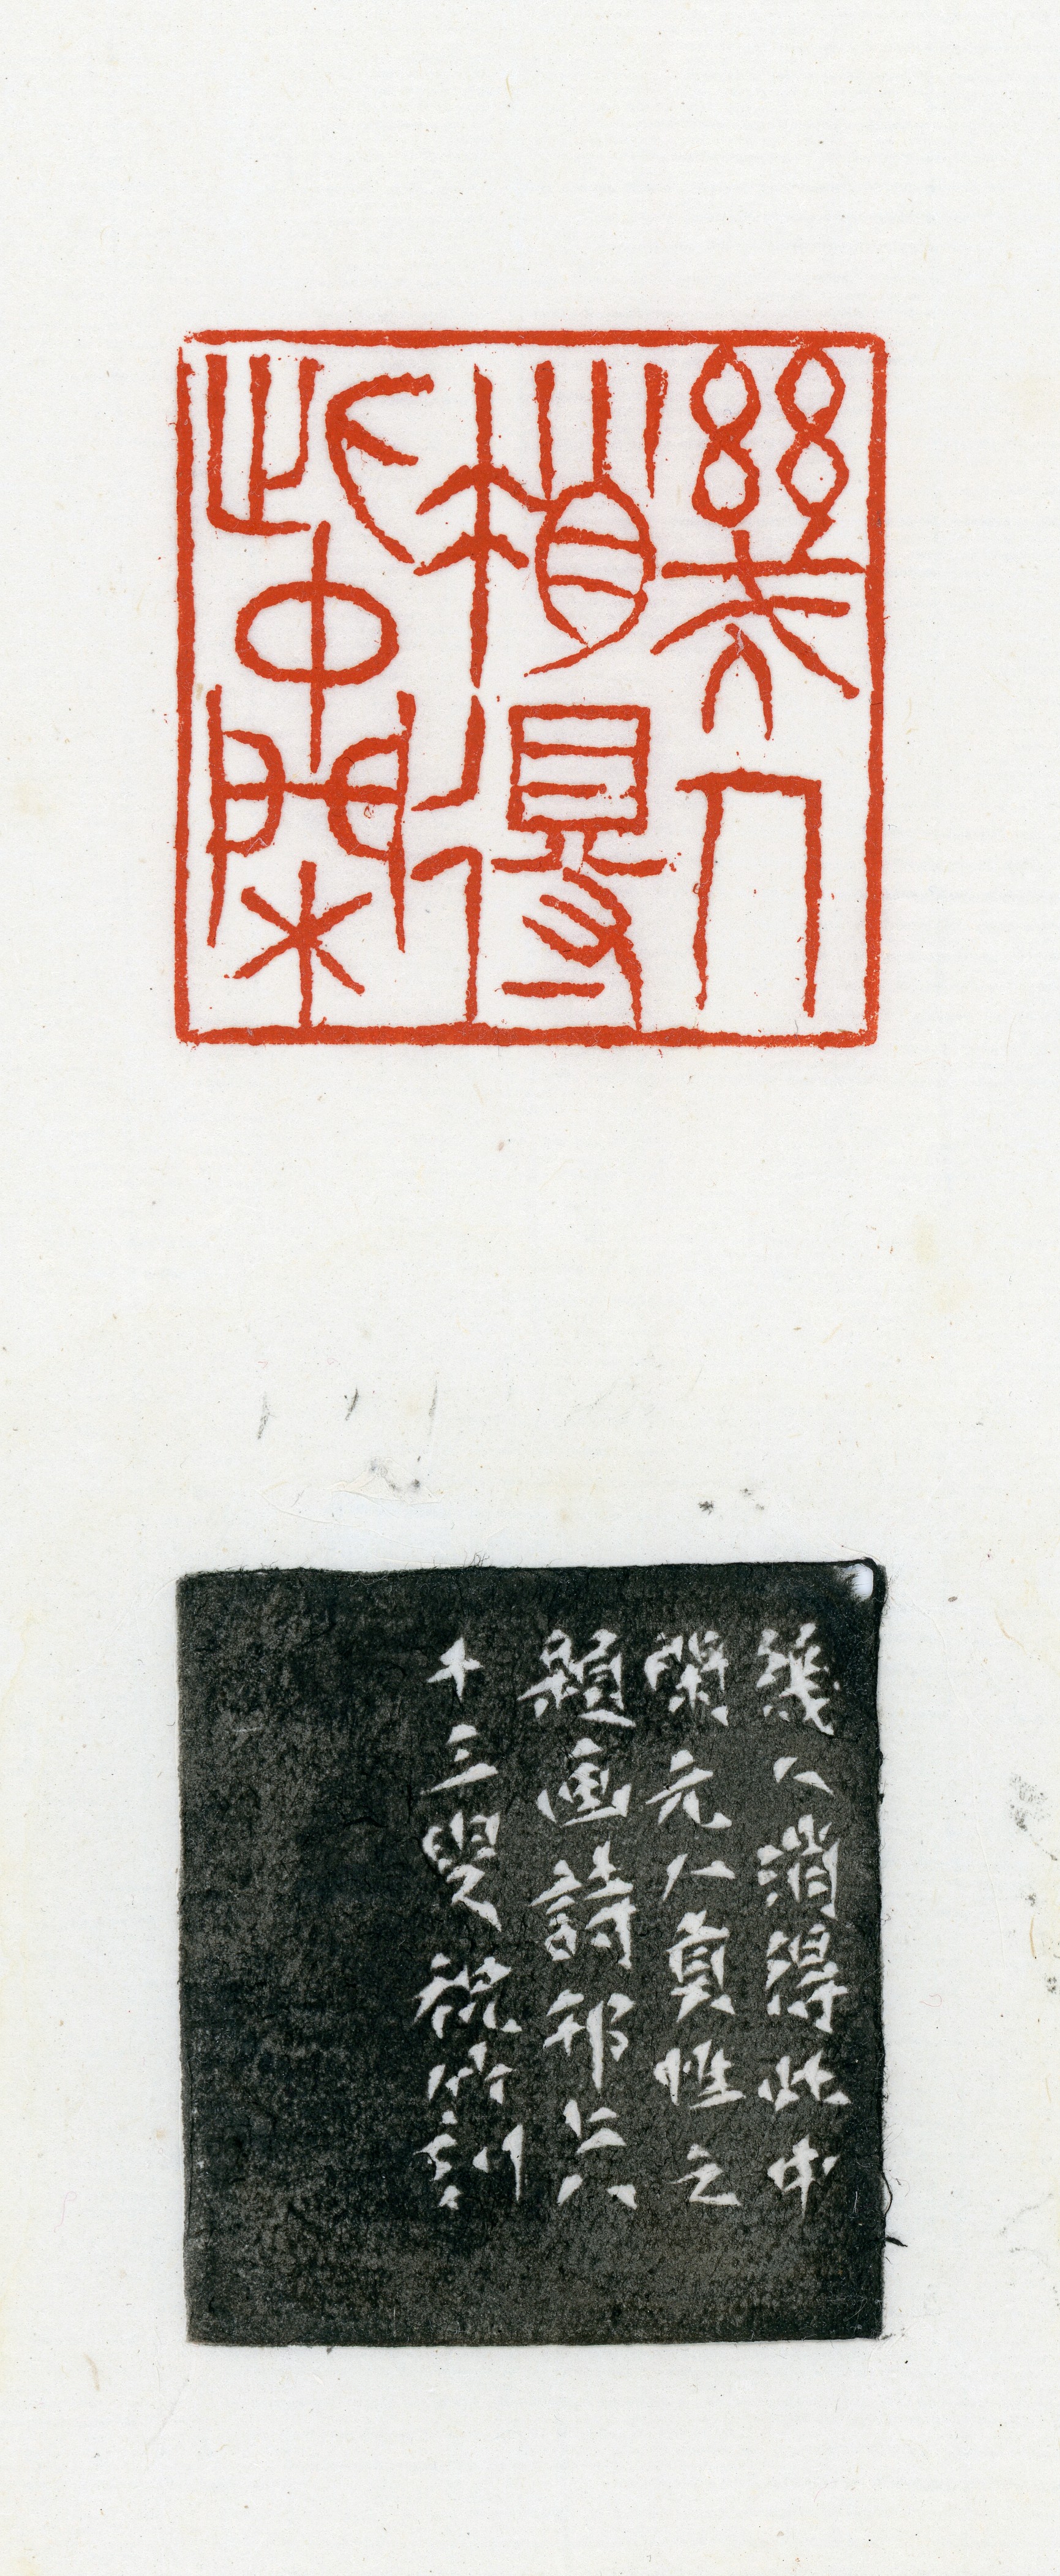 幾人
消得
此中閑
幾人消得此中
閑元人貢性之
題画詩邗上六
十三叟祝竹刻